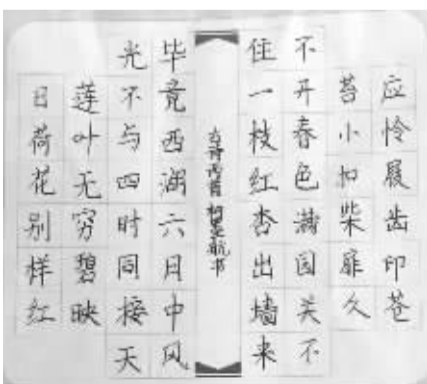 应怜履齿印苍
苔小扣柴扉久
不开春色满园关不
住一枝红杏出墙来
古诗两首 航书
毕竟西湖六月中风
光不与四时同接天
莲叶无穷碧映
日荷花别样红